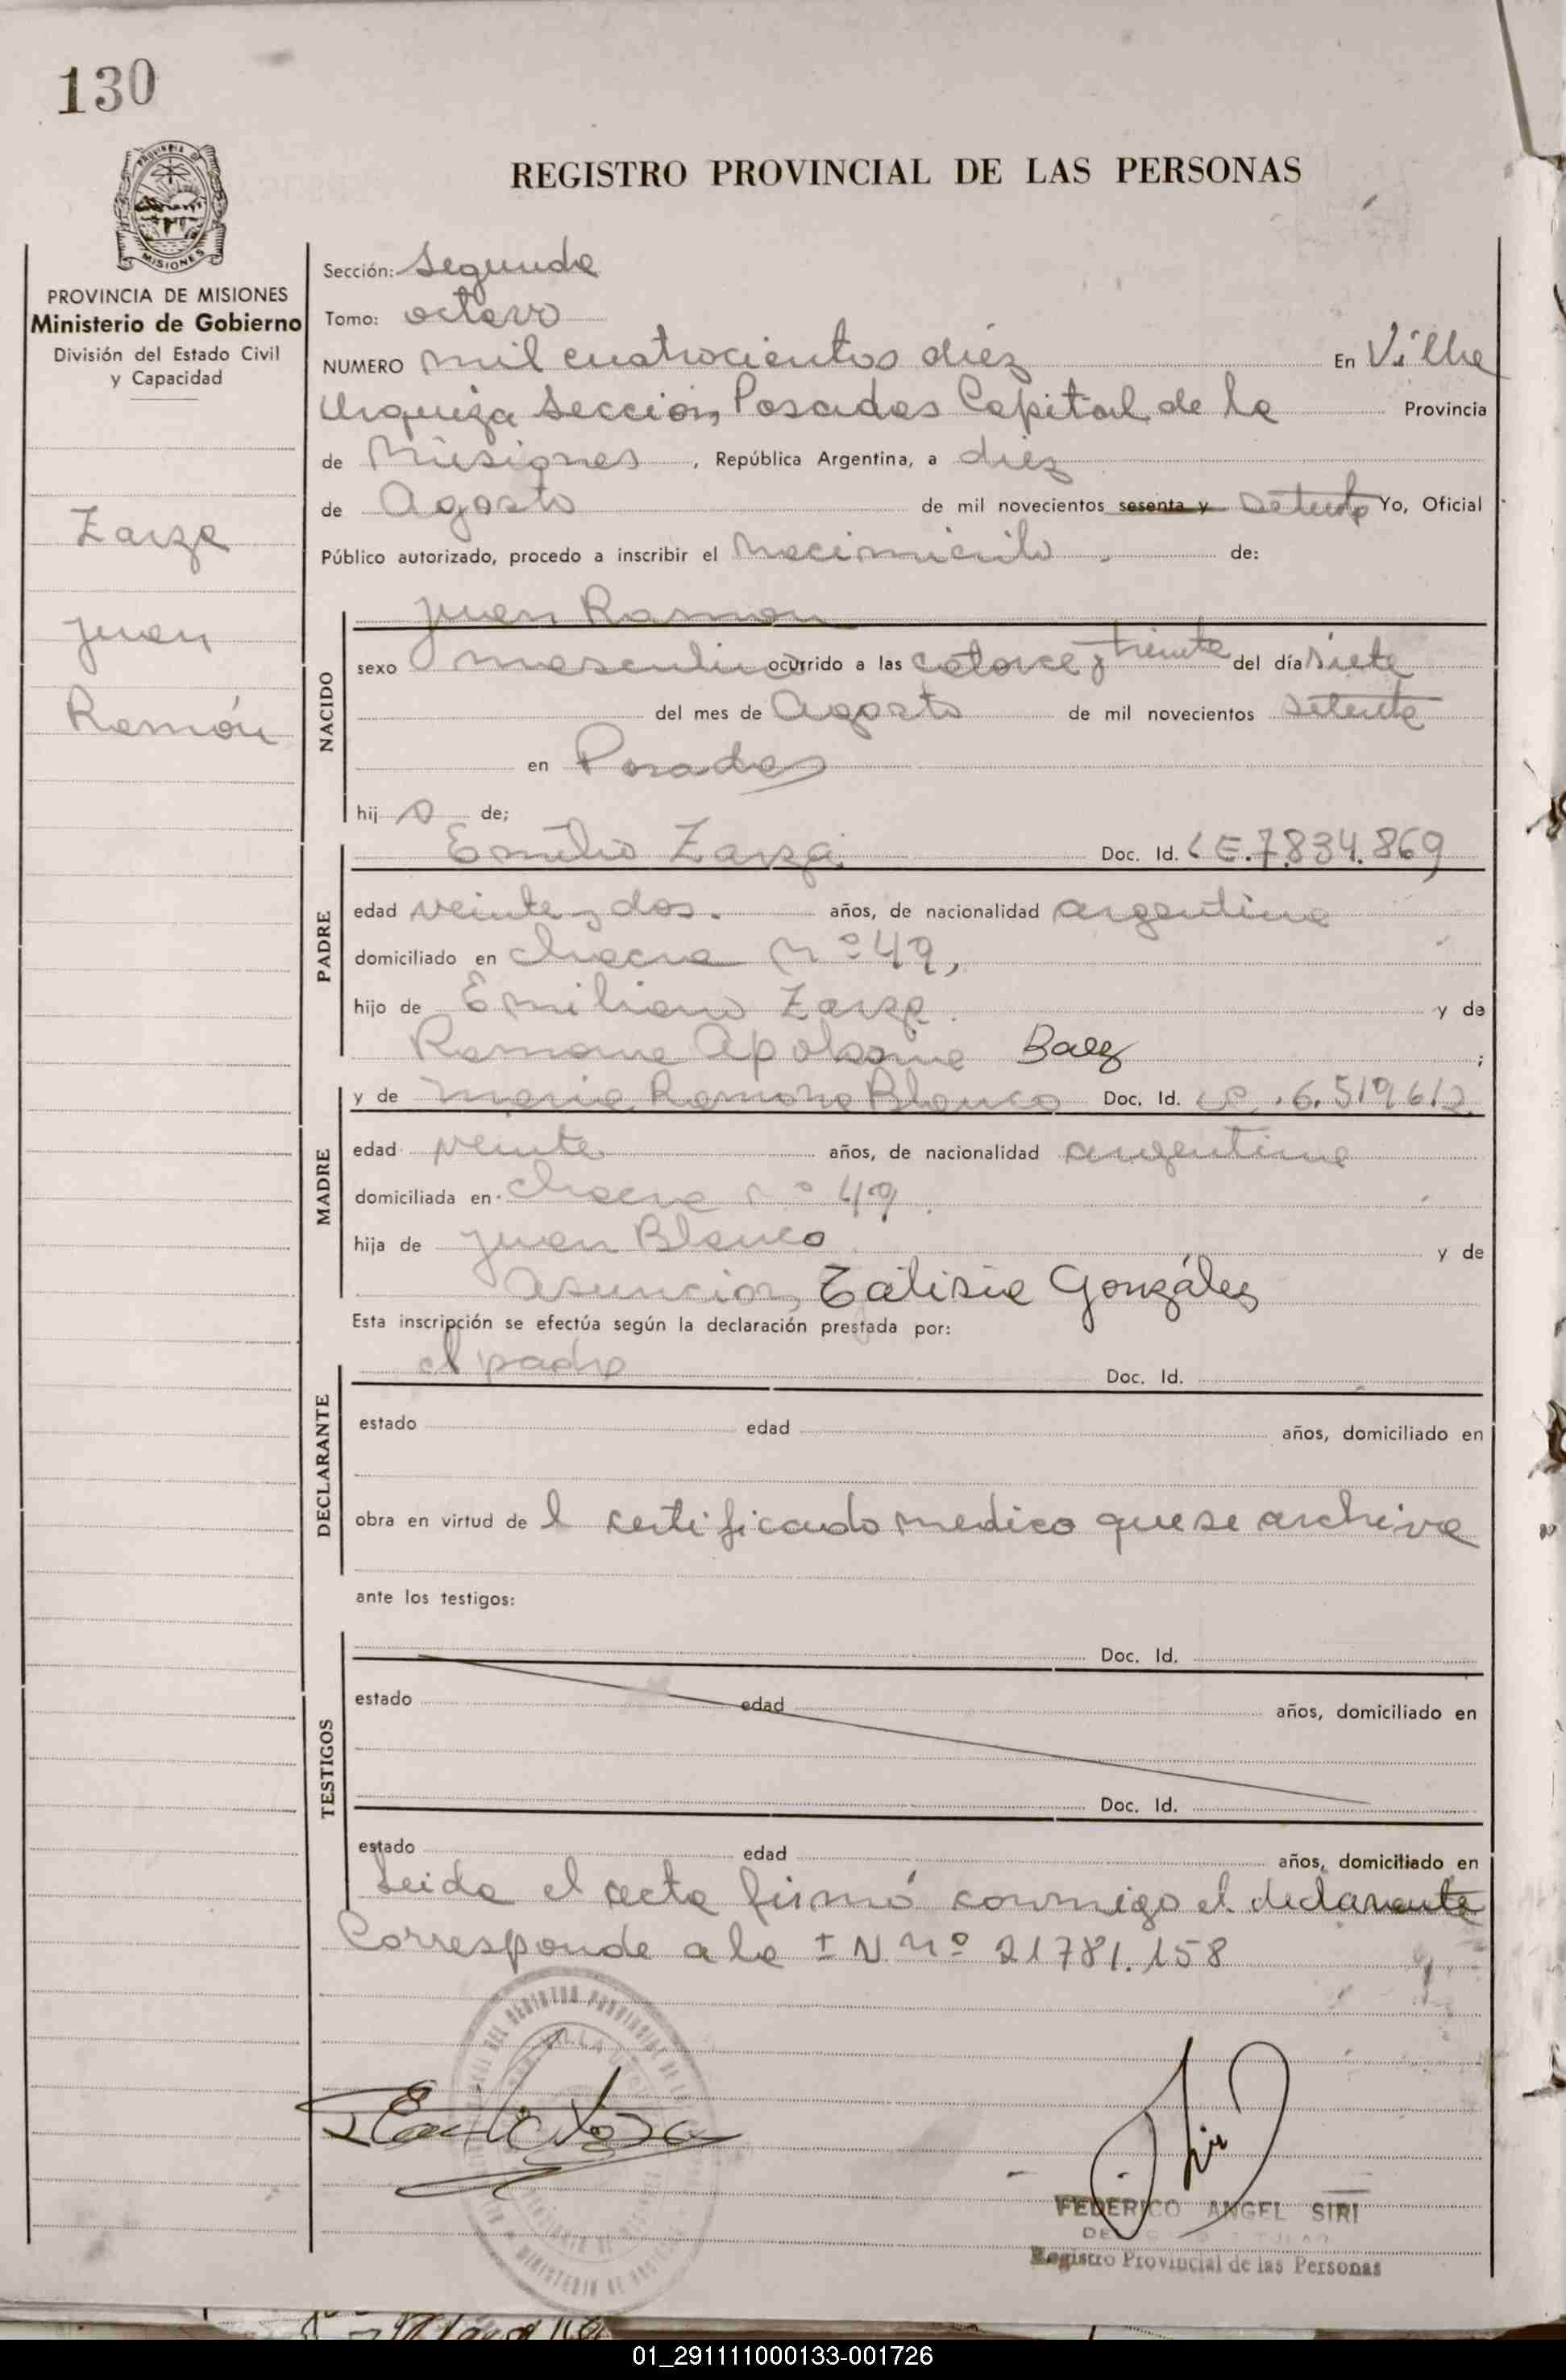 130
PROVINCIA DE
MISIONES
REGISTRO PROVINCIAL DE LAS PERSONAS
PROVINCIA DE MISIONES
Ministerio de Gobierno
División del Estado Civil
y Capacidad
Zarza
Juan
Ramón
Sección: Segunda
Tomo: octavo
NUMERO mil cuatrocientos diez En Villa
Urquiza Sección, Posadas Capital de la Provincia
de Misiones, República Argentina, a diez
de Agosto de mil novecientos sesenta y setenta Yo, Oficial
Público autorizado, procedo a inscribir el nacimiento. de:
NACIDO
Juan Ramon
sexo masculino ocurrido a las catorce y treinta del día siete
del mes de Agosto de mil novecientos setenta
en Posadas
hij o de;
PADRE
Emilio Zarza Doc. Id. LE.7.834.869
edad veinte y dos. años, de nacionalidad argentina
domiciliado en chacra Nº 49,
hijo de Emiliano Zarza. y de
Ramona Apolonia Baez ;
MADRE
y de Maria Ramona Blanco Doc. Id. LC.6.519612.
edad veinte años, de nacionalidad argentina
domiciliada en chacra nº 49.
hija de Juan Blanco y de
Asuncion, González
Esta inscripción se efectúa según la declaración prestada por:
DECLARANTE
el padre Doc. Id.
estado edad años, domiciliado en
obra en virtud de l certificado medico que se archiva
ante los testigos:
TESTIGOS
Doc. Id.
estado edad años, domiciliado en
Doc. Id.
estado edad años, domiciliado en
Leida el acta firmó conmigo el declarante
Corresponde a la IN Nº 21781.158
FEDERICO ANGEL SIRI
Registro Provincial de las Personas
01_291111000133-001726